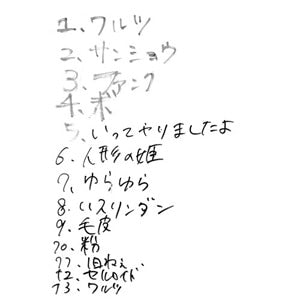 1、ワルツ
2、サンショウ
3、ファンク
4、ボ
5、いってやりましたよ
6、人形の姫
7、ゆらゆら
8、いスリンダン
9、毛皮
10、粉
11、旧ねぇ
12、セルロイド
13、ワルツ